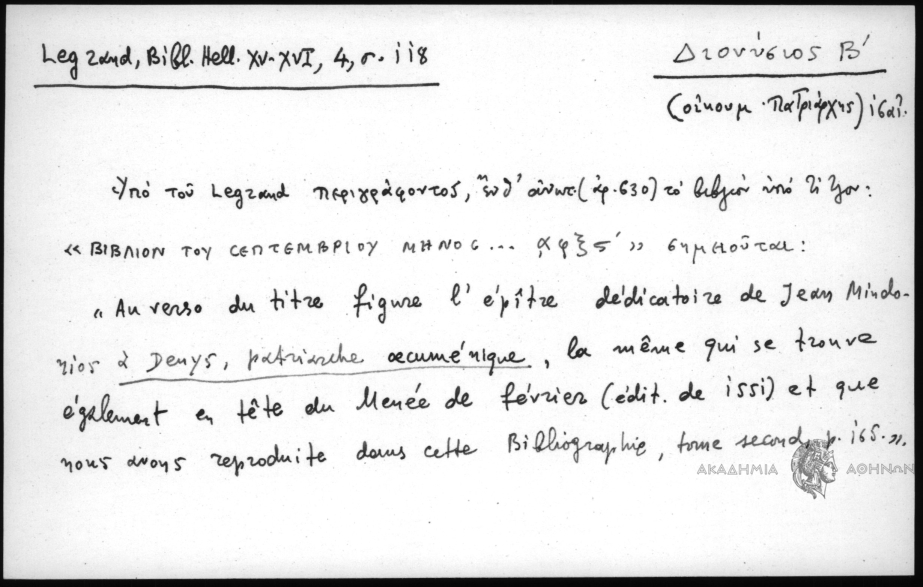 Legrand, Bibl. Hell. XV-XVI, 4, σ. 118
Διονύσιος Β´
(οἰκουμ. Πατριάρχης)
Ὑπό τοῦ Legrand περιγράφοντος, ἔνθ' ἀνωτ. (ἀρ. 630) τό βιβλίον ὑπό τίτλον:
« ΒΙΒΛΙΟΝ ΤΟΥ CΕΠΤΕΜΒΡΙΟΥ ΜΗΝΟC ... ͵αφξς´ » σημειοῦται:
« Au verso du titre figure l'épître dédicatoire de Jean Mindo-
nios à Denys, patriarche œcuménique, la même qui se trouve
également en tête du Menée de février (édit. de 1551) et que
nous avons reproduite dans cette Bibliographie, tome second, p. 165. ».
ΑΚΑΔΗΜΙΑ ΑΘΗΝΩΝ